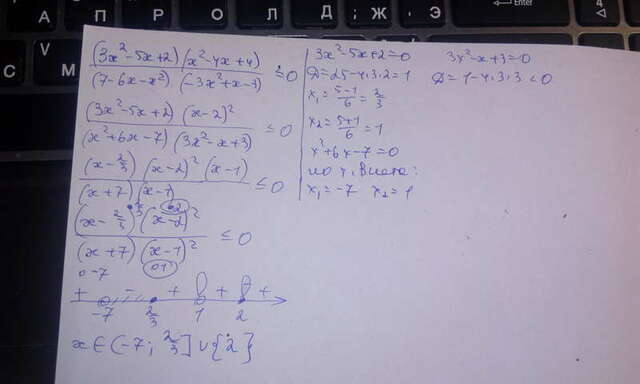 А П Р О Л Д ; Ж , Э Enter 4
(3x²-5x+2)(x²-4x+4) / (7-6x-x²)(-3x²+x-3) ≤0
(3x²-5x+2)(x-2)² / (x²+6x-7)(3x²-x+3) ≤0
(x-2/3)(x-2)²(x-1) / (x+7)(x-1) ≤0
(x-2/3)(x-2)² / (x+7)(x-1)² ≤0
-7
+ - - + + +
-7 2/3 1 2
x∈(-7; 2/3]∪{2}
3x²-5x+2=0
D=25-4·3·2=1
x₁=5-1/6=2/3
x₂=5+1/6=1
x²+6x-7=0
по т. Виета:
x₁=-7 x₂=1
3x²-x+3=0
D=1-4·3·3<0